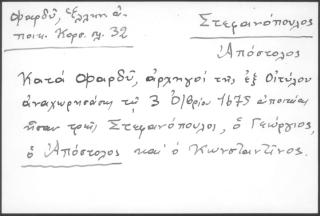 Φαρδύ, Ἑλλην. ἀ-
ποικ. Κορσ. σλ. 32
Στεφανόπουλος
Ἀπόστολος
Κατά Φαρδύ, ἀρχηγοί τῆς ἐξ Οἰτύλου
ἀναχωρησάσης τῇ 3 8/βρίου 1675 ἀποικίας
ἦσαν τρεῖς Στεφανόπουλοι, ὁ Γεώργιος,
ὁ Ἀπόστολος καί ὁ Κωνσταντῖνος.